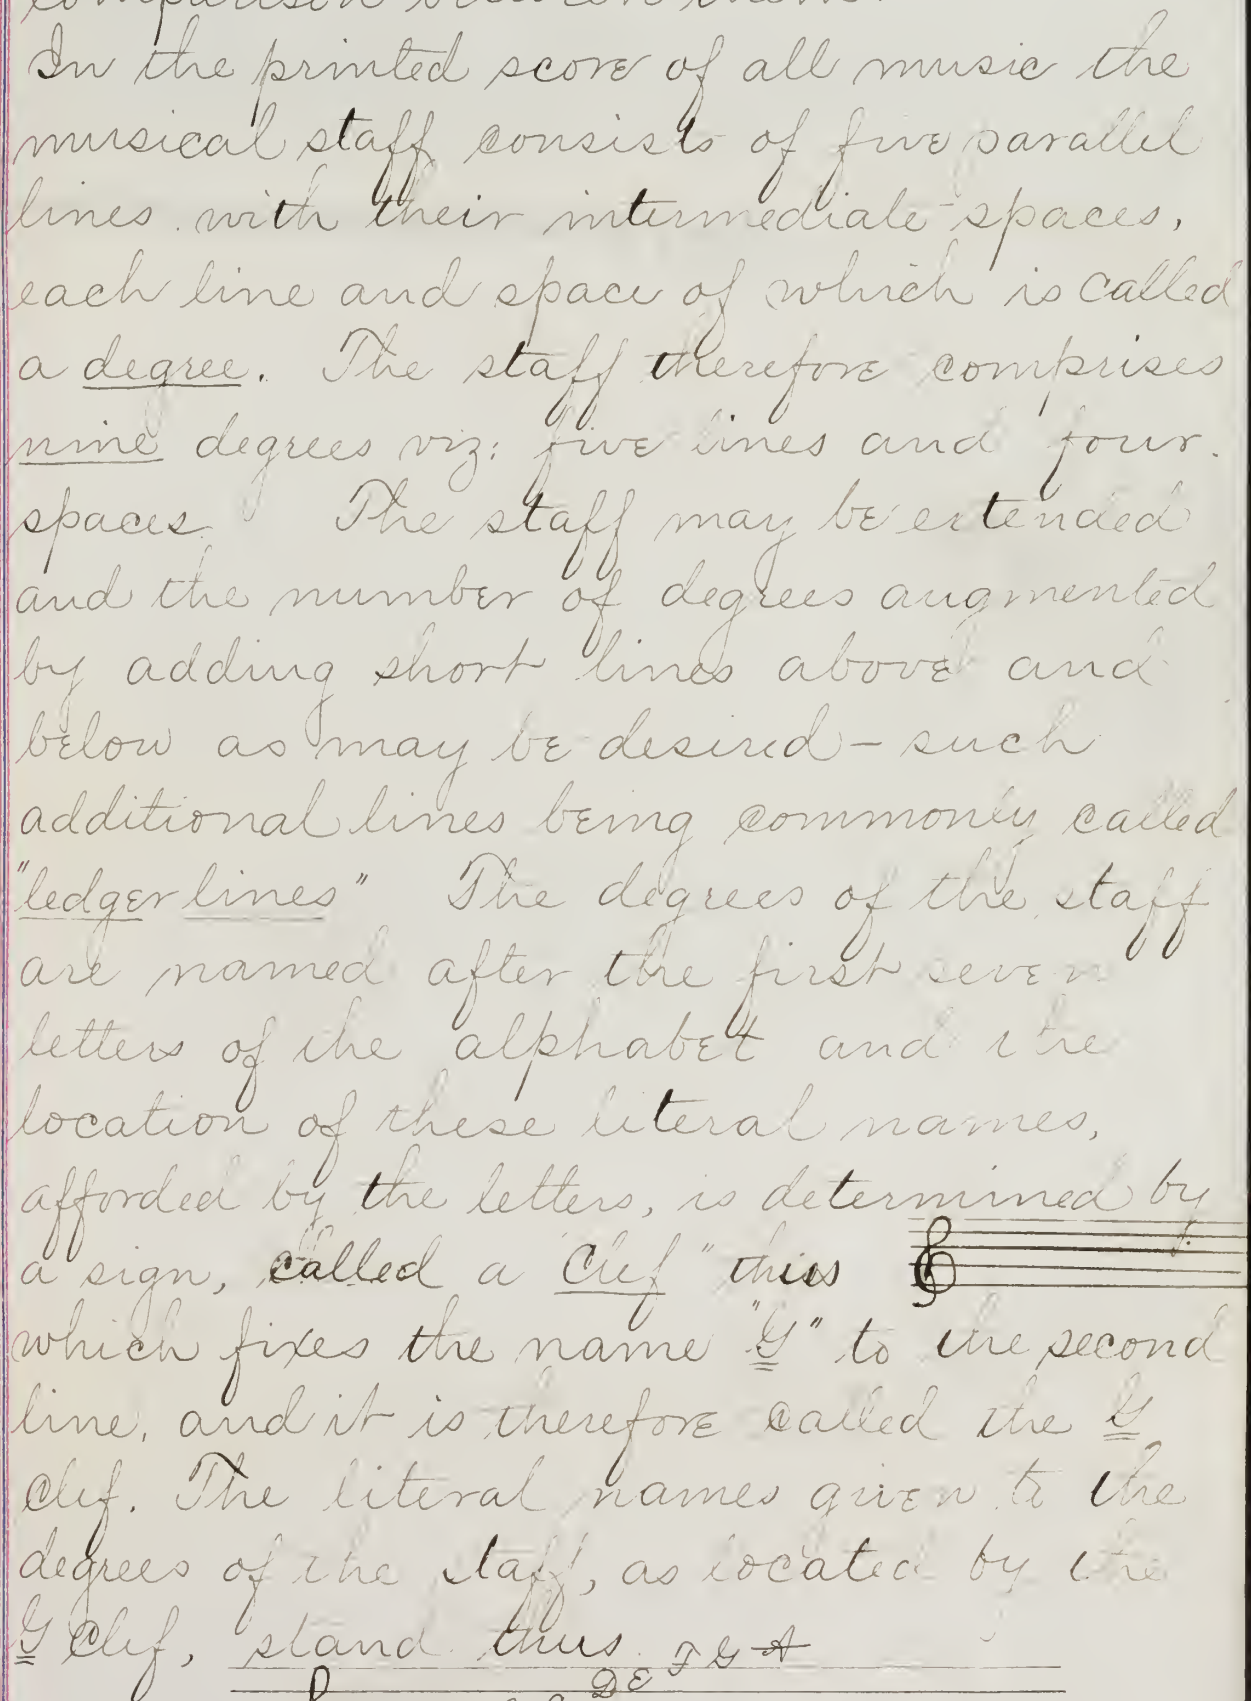 comparison between them.
In the printed score of all music the
musical staff consists of five parallel
lines with their intermediate spaces,
each line and space of which is called
a degree. The staff therefore comprises
nine degrees viz: five lines and four.
spaces. The staff may be extended
and the number of degrees augmented
by adding short lines above and
below as may be desired – such
additional lines being commonly called
"ledger lines" The degrees of the staff
are named after the first seven
letters of the alphabet and the
location of these literal names,
afforded by the letters, is determined by
a sign, called a "Clef" thus
which fixes the name "G" to the second
line, and it is therefore called the G
Clef. The literal names given to the
degrees of the staff, as located by the
G Clef, stand thus.
D E F G A